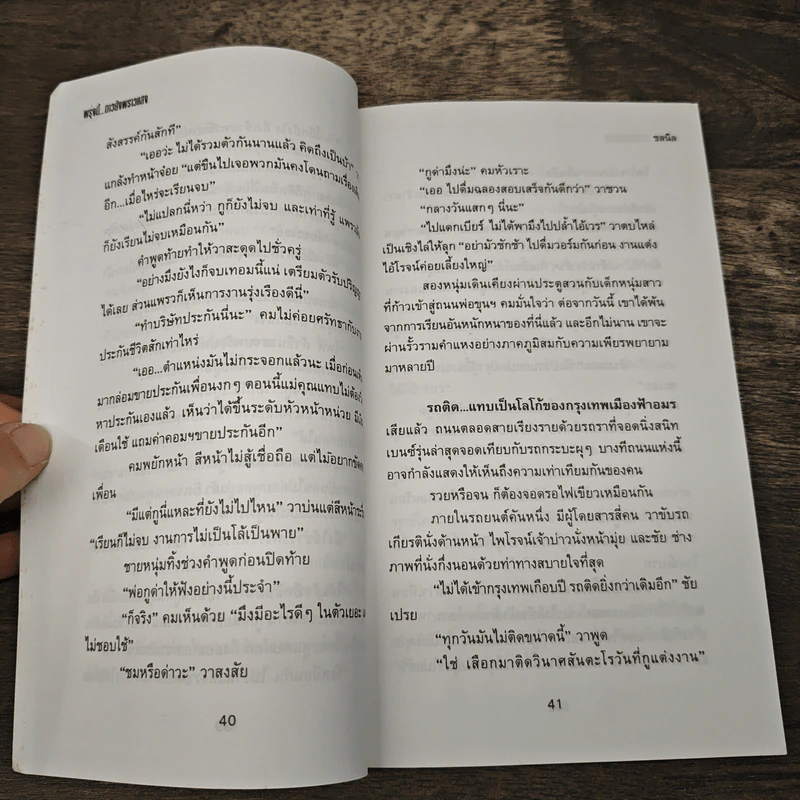 พรุ่งนี้...ดาวยังพราวแสง
สังสรรค์กันสักที”
“เออว่ะ ไม่ได้รวมตัวกันนานแล้ว คิดถึงเป็นบ้า”
แกล้งทำหน้าจ๋อย “แต่ขืนไปเจอพวกมันคงโดนถามเรื่อง
อีก...เมื่อไหร่จะเรียนจบ”
“ไม่แปลกนี่หว่า กูก็ยังไม่จบ และเท่าที่รู้ แพรวา
ก็ยังเรียนไม่จบเหมือนกัน”
คำพูดท้ายทำให้วาสะดุดไปชั่วครู่
“อย่างมึงยังไงก็จบเทอมนี้แน่ เตรียมตัวรับปริญญา
ได้เลย ส่วนแพรวก็เห็นการงานรุ่งเรืองดีนี่”
“ทำบริษัทประกันนี่นะ” คมไม่ค่อยศรัทธากับ
ประกันชีวิตสักเท่าไหร่
“เออ...ตำแหน่งมันไม่กระจอกแล้วนะ เมื่อก่อน
มากล่อมขายประกันเพื่อนงกๆ ตอนนี้แม่คุณแทบไม่ต้อง
หาประกันเองแล้ว เห็นว่าได้ขึ้นระดับหัวหน้าหน่วย มี
เดือนใช้ แถมค่าคอมฯขายประกันอีก”
คมพยักหน้า สีหน้าไม่สู้เชื่อถือ แต่ไม่อยากขัด
เพื่อน
“มีแต่กูนี่แหละที่ยังไม่ไปไหน” วาบ่นแต่สีหน้า
“เรียนก็ไม่จบ งานการไม่เป็นโล้เป็นพาย”
ชายหนุ่มทิ้งช่วงคำพูดก่อนปิดท้าย
“พ่อกูด่าให้ฟังอย่างนี้ประจำ”
“ก็จริง” คมเห็นด้วย “มึงมีอะไรดีๆ ในตัวเยอะ
ไม่ชอบใช้”
“ชมหรือด่าวะ” วาสงสัย
40
ชลนิล
“กูด่ามึงน่ะ” คมหัวเราะ
“เออ ไปดื่มฉลองสอบเสร็จกันดีกว่า” วาชวน
“กลางวันแสกๆ นี่นะ”
“ไปแดกเบียร์ ไม่ได้พามึงไปปล้ำไอ้เวร” วาตบไหล่
เป็นเชิงไล่ให้ลุก “อย่ามัวชักช้า ไปดื่มวอร์มกันก่อน งานแต่ง
ไอ้โรจน์ค่อยเลี้ยงใหญ่”
สองหนุ่มเดินเคียงผ่านประตูสวนกับเด็กหนุ่มสาว
ที่ก้าวเข้าสู่ถนนพ่อขุนฯ คมมั่นใจว่า ต่อจากวันนี้ เขาได้พ้น
จากการเรียนอันหนักหนาของที่นี่แล้ว และอีกไม่นาน เขาจะ
ผ่านรั้วรามคำแหงอย่างภาคภูมิสมกับความเพียรพยายาม
มาหลายปี
รถติด...แทบเป็นโลโก้ของกรุงเทพเมืองฟ้าอมร
เสียแล้ว ถนนตลอดสายเรียงรายด้วยรถราที่จอดนิ่งสนิท
เบนซ์รุ่นล่าสุดจอดเทียบกับรถกระบะผุๆ บางทีถนนแห่งนี้
อาจกำลังแสดงให้เห็นถึงความเท่าเทียมกันของคน
รวยหรือจน ก็ต้องจอดรอไฟเขียวเหมือนกัน
ภายในรถยนต์คันหนึ่ง มีผู้โดยสารสี่คน วาขับรถ
เกียรตินั่งด้านหน้า ไพโรจน์เจ้าบ่าวนั่งหน้ามุ่ย และชัย ช่าง
ภาพที่นั่งกึ่งนอนด้วยท่าทางสบายใจที่สุด
“ไม่ได้เข้ากรุงเทพเกือบปี รถติดยิ่งกว่าเดิมอีก” ชัย
เปรย
“ทุกวันมันไม่ติดขนาดนี้” วาพูด
“ใช่ เสือกมาติดวินาศสันตะโรวันที่กูแต่งงาน”
41